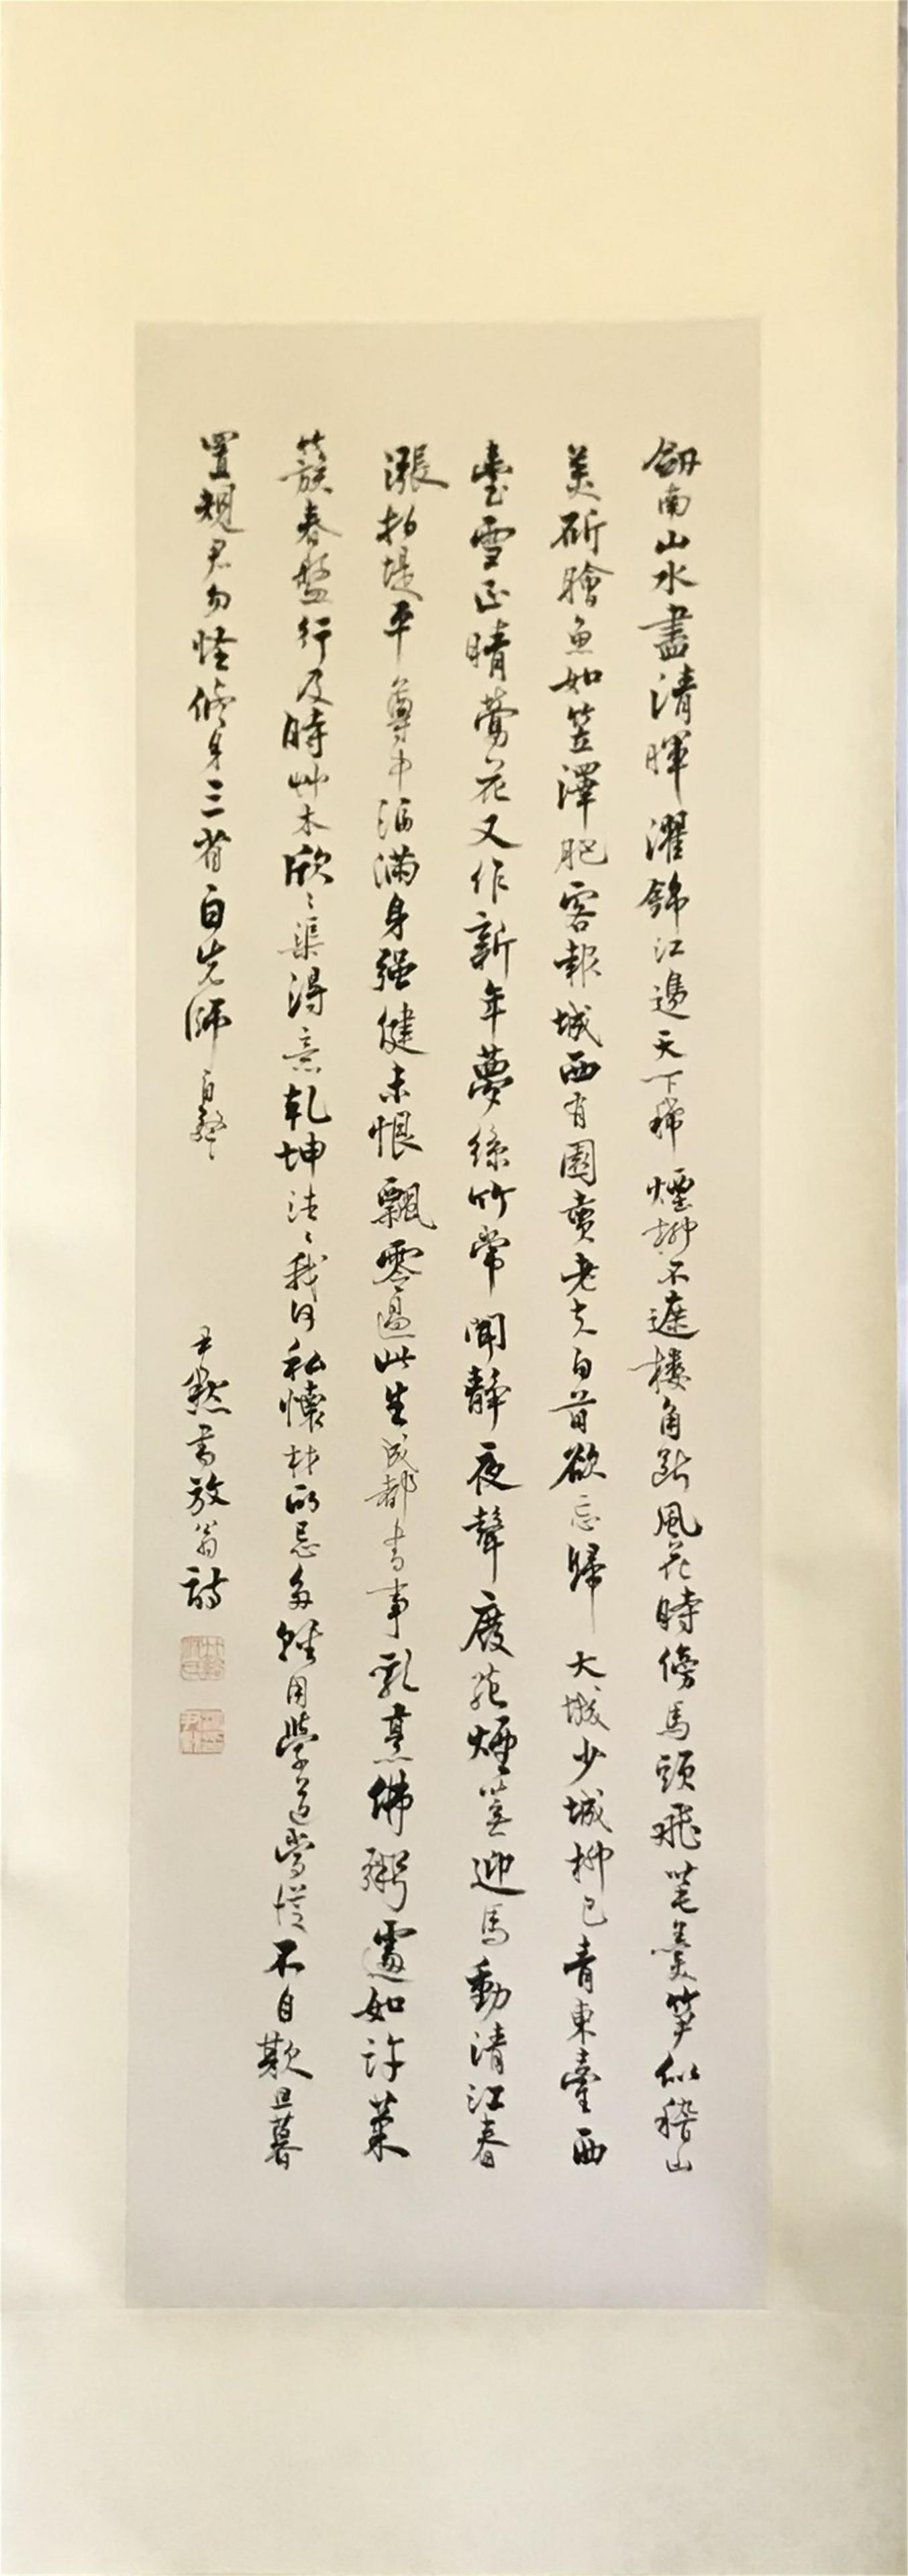 劒南山水盡清暉濯錦江邊天下稀煙柳不遮樓角斷風花時傍馬頭飛芼羹笋似稽山
美斫膾魚如笠澤肥客報城西有園賣老夫白首欲忘歸大城少城柳已青東臺西
臺雪正晴鶯花又作新年夢絲竹常聞靜夜聲廢苑煙蕪迎馬動清江春
漲拍堤平尊中酒滿身强健未恨飄零過此生成都書事乳烹佛粥遽如許菜
簇春盤行及時艸木欣々渠得意乾坤浩々我何私懷材所忌多輕用學道當從不自欺旦暮
置規君勿怪修身三省自先師自警
尹默書放翁詩